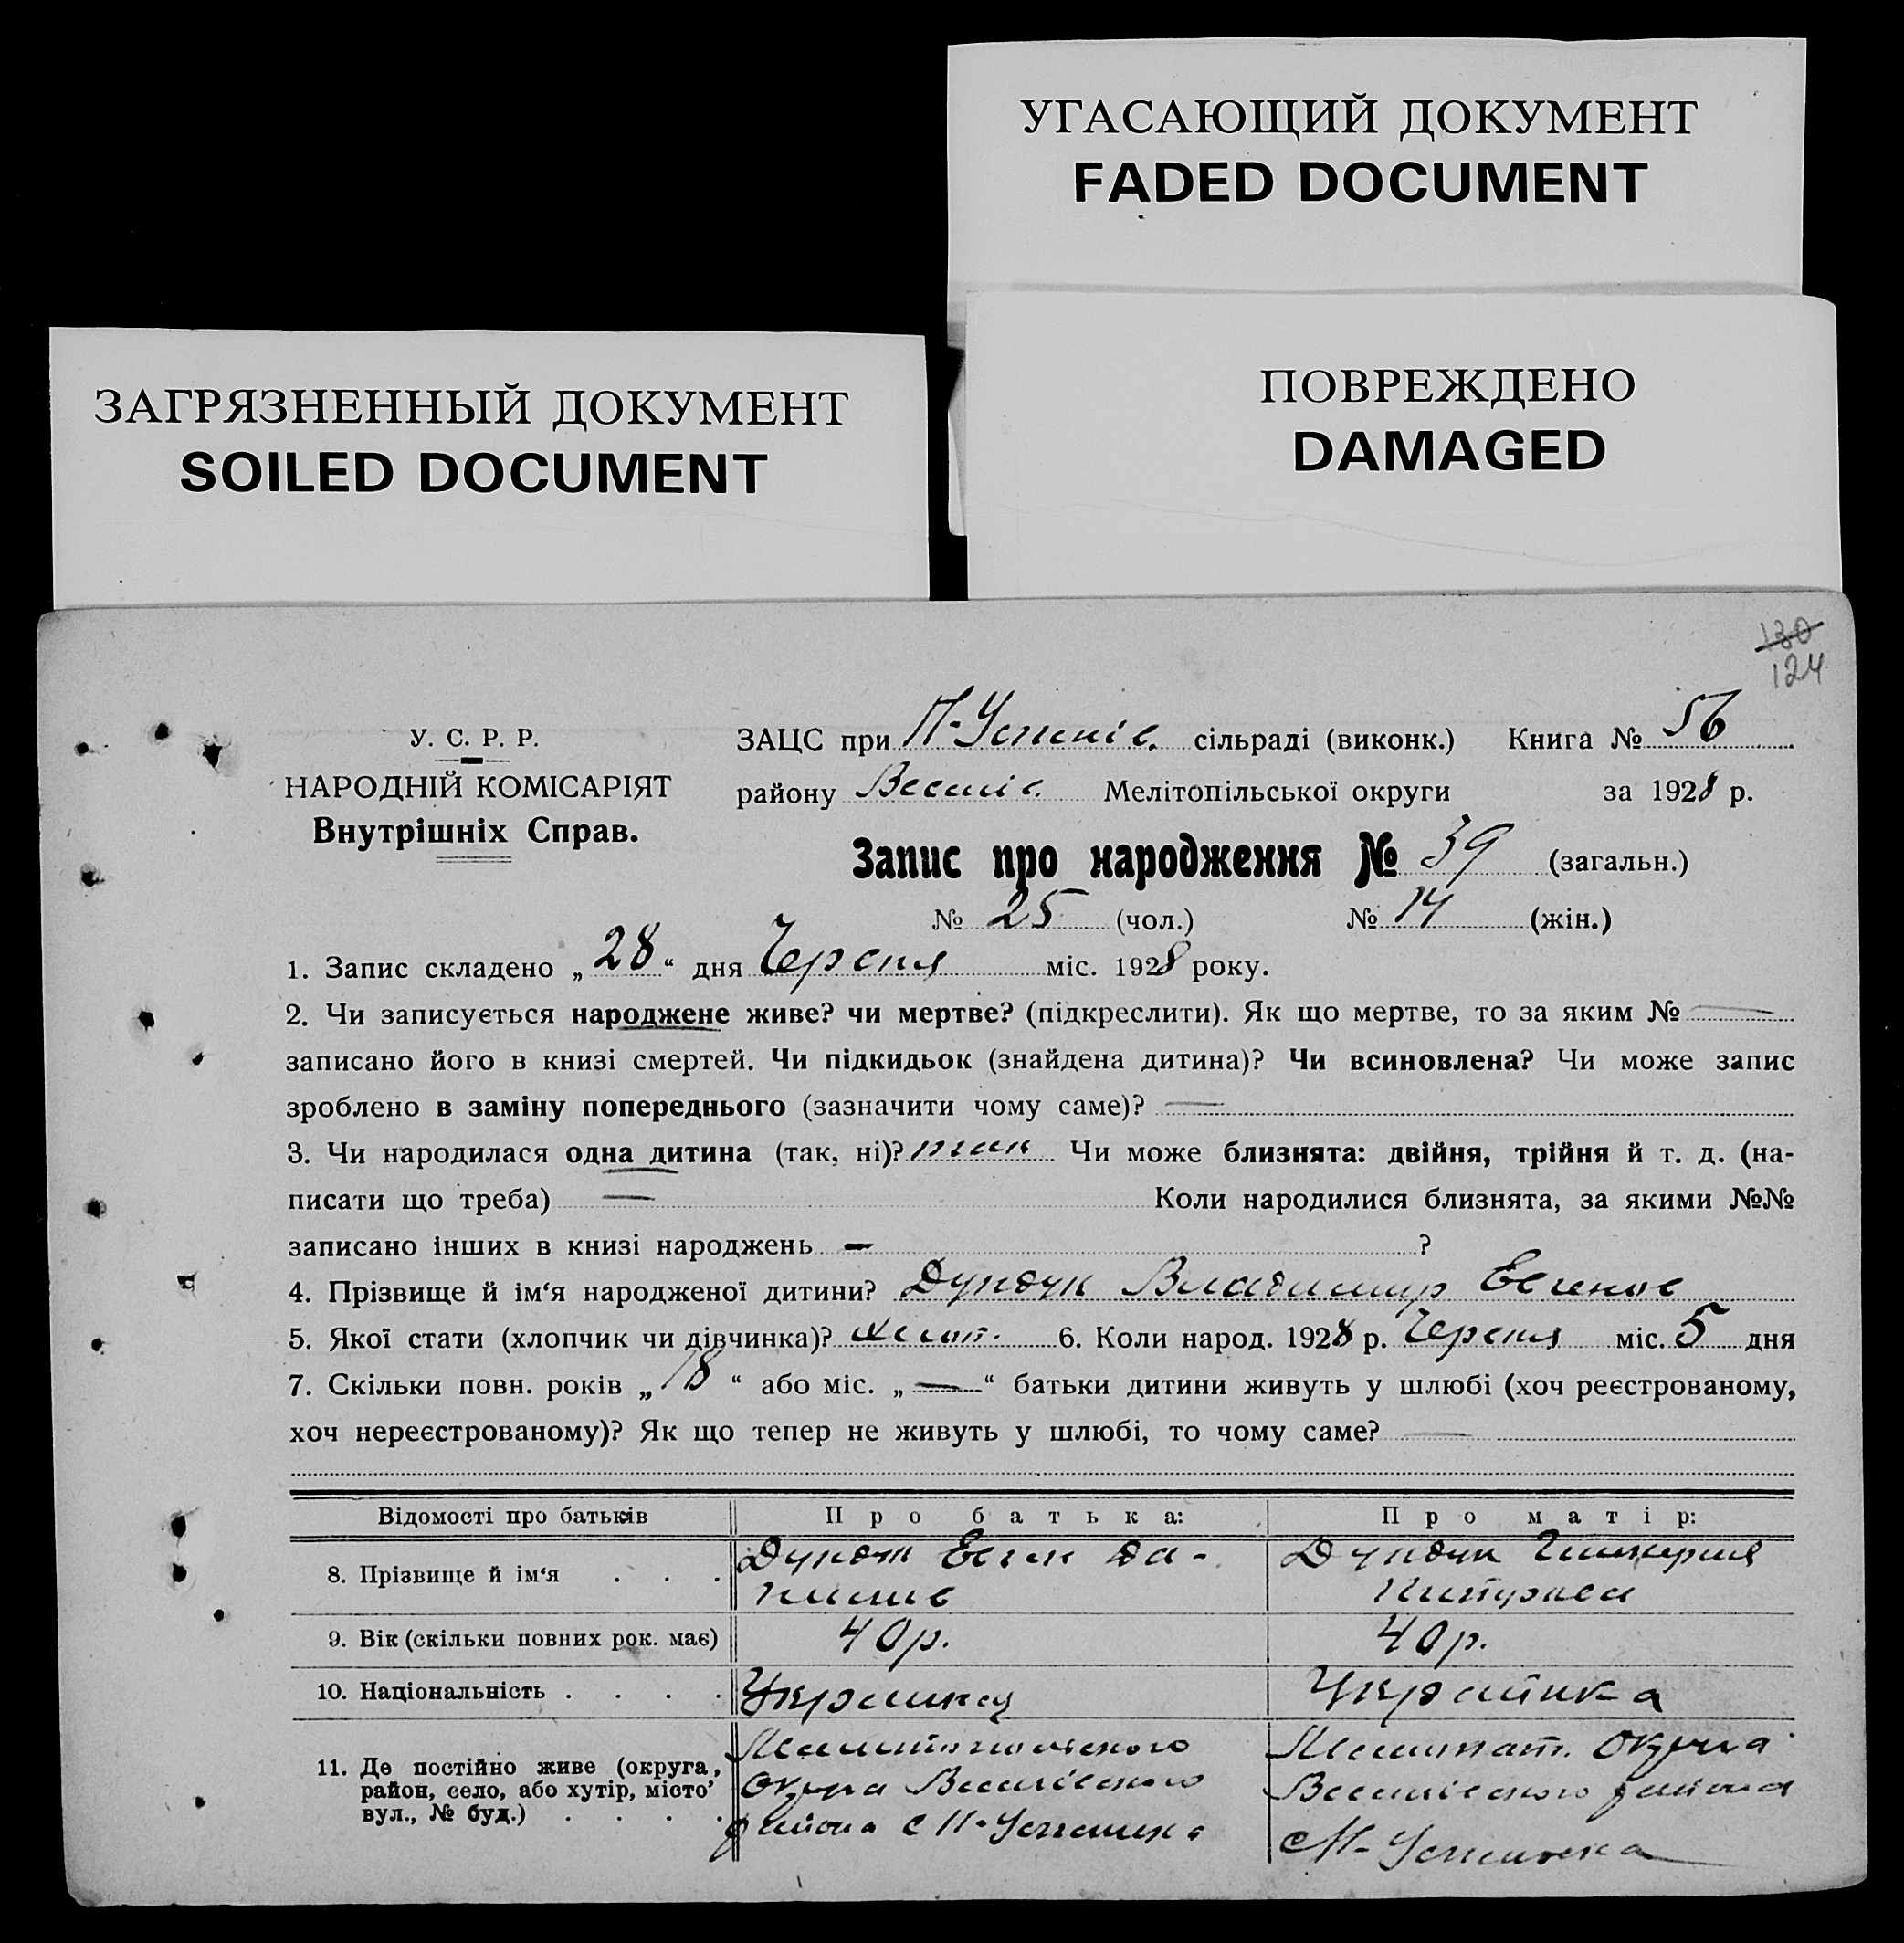 УГАСАЮЩИЙ ДОКУМЕНТ
FADED DOCUMENT
ПОВРЕЖДЕНО
DAMAGED
ЗАГРЯЗНЕННЫЙ ДОКУМЕНТ
SOILED DOCUMENT
130
124
У. С. Р. Р.
НАРОДНІЙ КОМІСАРІЯТ
Внутрішніх Справ.
ЗАЦС при Н-Успенів. сільраді (виконк.) Книга № 56
району Веселів. Мелітопільської округи за 1928 р.
Запис про народження № 39 (загальн.)
№ 25 (чол.) № 14 (жін.)
1. Запис складено „28“ дня Червня міс. 1928 року.
2. Чи записується народжене живе? чи мертве? (підкреслити). Як що мертве, то за яким № —
записано його в книзі смертей. Чи підкидьок (знайдена дитина)? Чи всиновлена? Чи може запис
зроблено в заміну попереднього (зазначити чому саме)? —
3. Чи народилася одна дитина (так, ні)? так Чи може близнята: двійня, трійня й т. д. (на-
писати що треба) — Коли народилися близнята, за якими №№
записано інших в книзі народжень — ?
4. Прізвище й ім‘я народженої дитини? Дундук Владимир Евгенов
5. Якої стати (хлопчик чи дівчинка)? 6. Коли народ. 1928 р. Червня міс. 5 дня
7. Скільки повн. років „18“ або міс. „—“ батьки дитини живуть у шлюбі (хоч реєстрованому,
хоч нереєстрованому)? Як що тепер не живуть у шлюбі, то чому саме? —
Відомості про батьків Про батька: Про матір:
8. Прізвище й ім‘я . . . Дундук Евген Да- Дундук
нилив
9. Вік (скільки повних рок. має) 40 р. 40 р.
10. Національність . . . . Українец Українка
11. Де постійно живе (округа, район, село, або хутір, місто’ вул., № буд.) . . . .
Мелитопольского
Округа Веселівского
района с Н-Успеннка
Мелитоп. Округа
Веселівского района
с Н-Успеновка